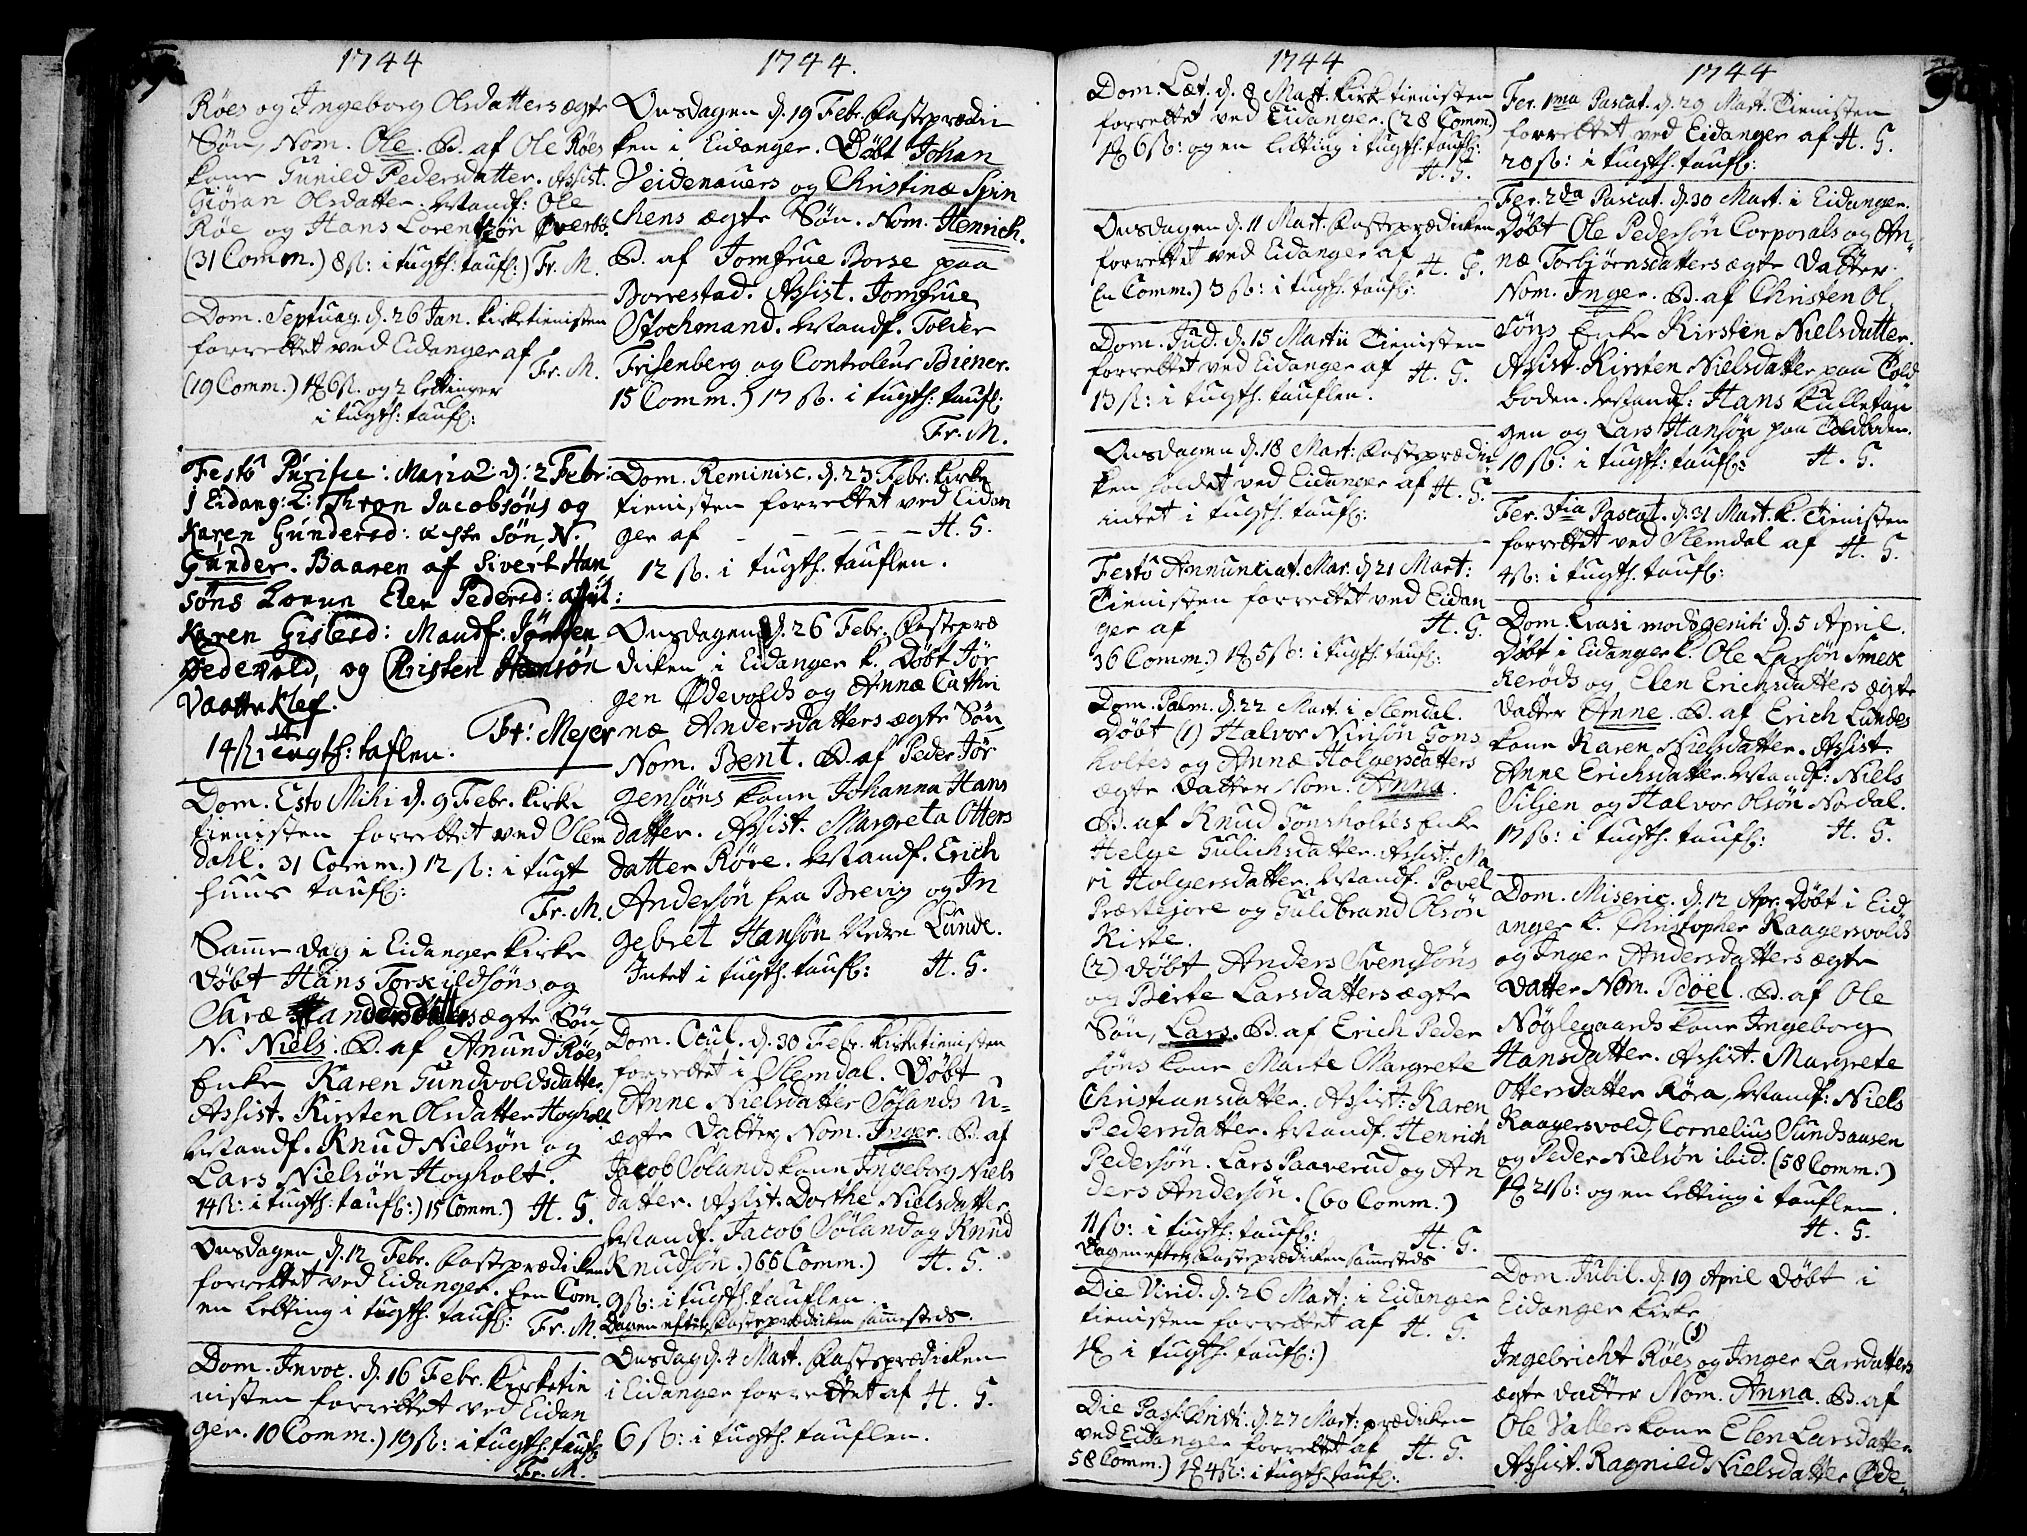 1744
Røes og Ingeborg Olsdatters ægte
Søn, Nom. Ole. B. af Ole Røes
kone Gunild Pedersdatter. Assist.
Giøran Olsdatter. Mandf: Ole
Røe og Hans Lorentzøn Øverbø.
(31 Comm.) 8 ß: i tugth. taufl:) Fr. M.
Dom. Septuag. d. 26 Jan. kirketienisten
forrettet ved Eidanger af
Fr. M.
(19 Comm.) 6 ß. og 2 lettinger
i tugth: taufl:
Festô Purific: Mariæ d: 2 Febr:
I Eidang: K: Thron Jacobsøns og
Karen Gundersd: echte Søn, N.
Gunder. Baaren af Sivert Han
søns Konen Elen Pedersd: assist:
Karen Gislesd: Mandf: Jørgen
Ødevold, og Christen Hansøn
Vaatteklef.
Fr: Mejer
14 ß: i tugth: taflen.
Dom. Esto Mihi d. 9 Febr. kirke
tienisten forrettet ved Slem
dahl. 31 Comm.) 12 ß: i tugt
huus taufl:
Fr. M.
Samme dag i Eidanger kirke
Døbt Hans Torkildsøns og
Saræ Handersdatters ægte Søn
N. Niels. B. af Anund Røes
Enke Karen Gundvoldsdatter.
Assist. Kirsten Olsdatter Hogholt
Mandf. Knud Nielsøn og
Lars Nielsøn Hogholt.
14 ß: i tugth: taufl:) 15 Comm.) H. G.
Onsdagen d. 12 Febr. Fasteprædicken
forrettet ved Eidanger. Een Com.
en letting i tugth. taufl:
Fr. M.
Dom. Invoc. d. 16 Febr. Kirketie
nisten forrettet ved Eidan
ger. 10 Comm.) 19 ß: i tugth. taufl:
Fr. M.
1744.
Onsdagen d. 19 Febr. Fasteprædi
ken i Eidanger. Døbt Johan
Veidenauers og Christinæ Spin
chens ægte Søn. Nom. Henrich.
B. af Jomfrue Borse paa
Borrestad. Assist. Jomfrue
Stochmand. Mandf. Tolder
Frisenberg og Controleur Biener.
15 Comm.) 17 ß. i tugth: taufl:
Fr. M.
Dom. Reminisc. d. 23 Febr. kirke
tienisten forrettet ved Eidan
ger af – – – – H. G.
12 ß. i tugth. tauflen.
Onsdagen d. 26 Febr. Fastepræ
dicken i Eidanger k. Døbt Jør
gen Ødevolds og Annæ Cathri
næ Andersdatters ægte Søn
Nom. Bent. B. af Peder Jør
gensøns kone Johanna Hans
datter. Assist. Margreta Otters
datter Røre. Mandf. Erich
Andersøn fra Brevig og In
gebret Hansøn Nedre Lunde.
Intet i tugth. taufl: H. G.
Dom. Ocul. d. 30 Febr. kirketienisten
forrettet i Slemdal. Døbt
Anne Nielsdatter Sølands u-
ægte Datter, Nom. Inger. B. af
Jacob Sølands kone Ingeborg Niels
datter. Assist. Dorthe Nielsdatter.
Mandf. Jacob Søland og Knud
Knudsøn.) 66 Comm.) H. G.
9 ß: i tugth. tauflen.
Dagen efter Fasteprædicken sammesteds.
Onsdag d. 4 Mart. Fasteprædicken
i Eidanger forrettet af H. G.
6 ß: i tugth. tauflen.
1744
Dom. Læt. d. 8 Mart. kirketienisten
forrettet ved Eidanger. (28 Comm)
6 ß: og en letting i tugth. taufl:
H. G.
Onsdagen d. 11 Mart. Fasteprædicken
forrettet ved Eidanger af
H. G.
(En Comm.) 3 ß: i tugth. taufl:
Dom. Jud. d. 15 Martii Tienisten
forrettet ved Eidanger af H. G.
13 ß: i tugth. tauflen.
Onsdagen d. 18 Mart: Fasteprædi
ken holdet ved Eidanger af H. G.
intet i tugth. taufl:
Festô Annunciat. Mar. d. 21 Mart:
Tienisten forrettet ved Eidan
ger af H. G.
36 Comm.) 5 ß: i tugth: taufl:
Dom. Palm. d. 22 Mart. i Slemdal.
Døbt (1) Halvor Ninsøn Gons
holtes og Annæ Holgersdatters
ægte Datter Nom. Anna.
B. af Knud Gonsholtes Enke
Helge Gulichsdatter. Assist: Ma
ri Holgersdatter. Mandf. Povel
Præstejore og Guldbrand Olsøn
Kiste.
(2) Døbt Anders Svensøns
og Birte Larsdatters ægte
Søn, Lars. B. af Erich Peder
søns kone Marte Margrete
Christiansdatter. Assist: Karen
Pedersdatter. Mandf. Henrich
Pedersøn. Lars Paaverud og An
ders Andersøn. (60 Comm.)
11 ß: i tugth: taufl: H. G.
Dagen efter Fasteprædicken sammesteds
Die Virid. d. 26 Mart: i Eidanger
tienisten forrettet af H. G.
i tugth. taufl:)
Die Pass. Christi. d. 27 Mart: prædicken
ved Eidanger forrettet af H. G.
58 Comm.) 4 ß: i tugth: taufl:
1744
Fer. 1ma Pascat. d. 29 Mart. Tienisten
forrettet ved Eidanger af H. G.
20 ß: i tugth. taufl:
Fer. 2da Pascat. d. 30 Mart. i Eidanger.
Døbt Ole Pedersøn Corporals og An
næ Torbjørnsdatters ægte Datter.
Nom. Inger. B. af Christen Ol
søns Enke Kirsten Nielsdatter.
Assist. Kirsten Nielsdatter paa Told
boden. Mandf: Hans Kulletan
gen og Lars Hansøn paa Tolboden.
10 ß: i tugth: taufl: H. G.
Fer. 3tia Pascat. d. 31 Mart. k. Tienisten
forrettet ved Slemdal af H. G.
4 ß: i tugth. taufl:
Dom. Qvasi modogeniti d. 5 April.
Døbt i Eidanger k. Ole Larsøn Smek
kerøds og Elen Erichsdatters ægte
Datter Anne. B. af Erich Lundes
kone Karen Nielsdatter. Assist.
Anne Erichsdatter. Mandf: Niels
Siljen og Halvor Olsøn Nordal.
17 ß: i tugth: taufl: H. G.
Dom. Miseric. d. 12 Apr. Døbt i Eid
anger k. Christopher Kaagersvolds
og Inger Andersdatters ægte
Datter Nom. Böel. B. af Ole
Nøglegaards kone Ingeborg
Hansdatter. Assist. Margrete
Ottersdatter Røra, Mandf: Niels
Kaagersvold, Cornelius Sundsaasen
og Peder Nielsøn ibid. (58 Comm.)
21 ß: og en letting i tauflen.
H. G.
Dom. Jubil. d. 19 April Døbt i
Eidanger kirke
(1)
Ingebricht Røes og Inger Larsdatters
ægte datter Nom. Anna. B. af
Ole Valters kone Elen Larsdatter
Assist. Ragnild Nielsdatter Øde-